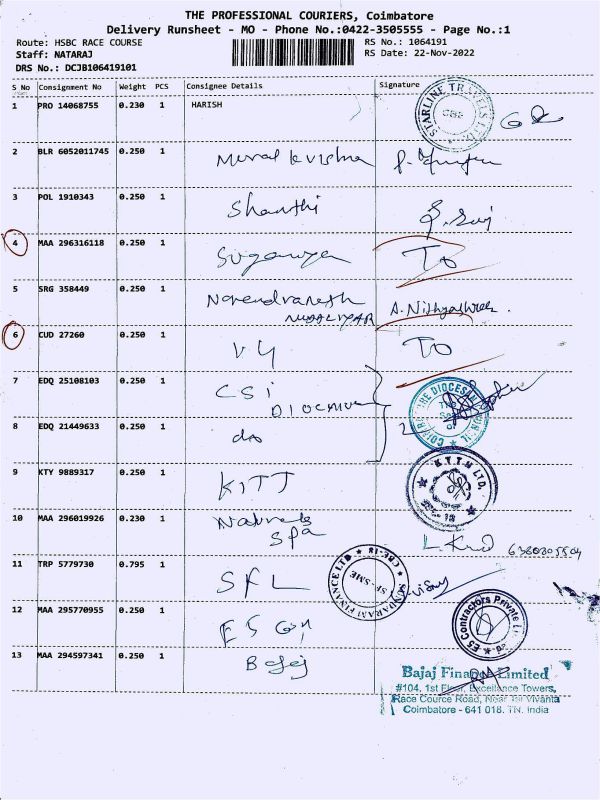 THE PROFESSIONAL COURIERS, Coimbatore
Delivery Runsheet - MO - Phone No.:0422-3505555 - Page No.:1
Route: HSBC RACE COURSE
Staff: NATARAJ
DRS No.: DCJB106419101
RS No.: 1064191
RS Date: 22-Nov-2022
S No Consignment No Weight PCS Consignee Details Signature
1 PRO 14068755 0.230 1 HARISH
STARLINE TRAVELS LTD
CBE
2 BLR 6052011745 0.250 1 Muralkrishna
3 POL 1910343 0.250 1 Shanthi
4 MAA 296316118 0.250 1 Suganya TO
5 SRG 358449 0.250 1 Narendranath
MUDALIYAR
6 CUD 27260 0.250 1 V4 TO
7 EDQ 25108103 0.250 1 CSi
DIOCMIVE
8 EDQ 21449633 0.250 1 do
9 KTY 9889317 0.250 1 KITT
K.T.T.M LTD.
10 MAA 296019926 0.230 1 Naturals
Spa
6380805504
11 TRP 5779730 0.795 1 SFL
SUNDARAM FINANCE LTD
CBE-18
12 MAA 295770955 0.250 1 ES Con
ES Contractors Private Ltd
13 MAA 294597341 0.250 1 Bajaj
Bajaj Finance Limited
#104, 1st Floor, Excellence Towers,
Race Cource Road, Near Taj Vivanta
Coimbatore - 641 018. TN. India